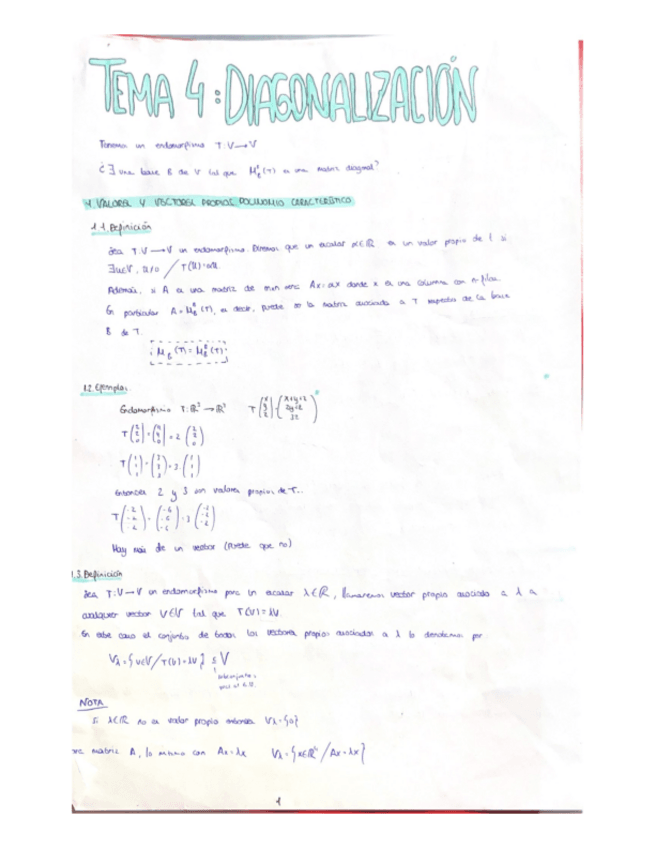 TEMA 4: DIAGONALIZACIÓN
Tenemos un endomorfismo T: V → V
¿∃ una base B de V tal que M_B^B (T) es una matriz diagonal?
1. VALORES Y VECTORES PROPIOS. POLINOMIO CARACTERÍSTICO
1.1. Definición
Sea T: V → V un endomorfismo. Diremos que un escalar α∈ℝ es un valor propio de t si
∃u∈V, u≠0 / T(u)=αu.
Además, si A es una matriz de nxn será Ax=αx donde x es una columna con n filas.
En particular A=M_B^B (T), es decir, puede ser la matriz asociada a T respecto de la base
B de T.
M_B (T) = M_B^B (T)
1.2. Ejemplos.
Endomorfismo T: ℝ³ → ℝ³ T (x y z) = (x+y+z 2y+z 3z)
T (2 2 0) = (4 4 0) = 2 · (2 2 0)
T (1 1 1) = (3 3 3) = 3 · (1 1 1)
Entonces 2 y 3 son valores propios de T.
Hay más de un vector (Puede que no)
1.3. Definición
Sea T: V → V un endomorfismo para un escalar λ∈ℝ, llamaremos vector propio asociado a λ a
cualquier vector v∈V tal que T(v)=λv.
En este caso el conjunto de todos los vectores propios asociados a λ lo denotamos por
Vλ = {v∈V / T(v)=λv} ≤ V
NOTA
Si λ∈ℝ no es valor propio entonces Vλ={0}
matriz A, lo mismo con Ax=λx Vλ={x∈ℝⁿ / Ax=λx}
1